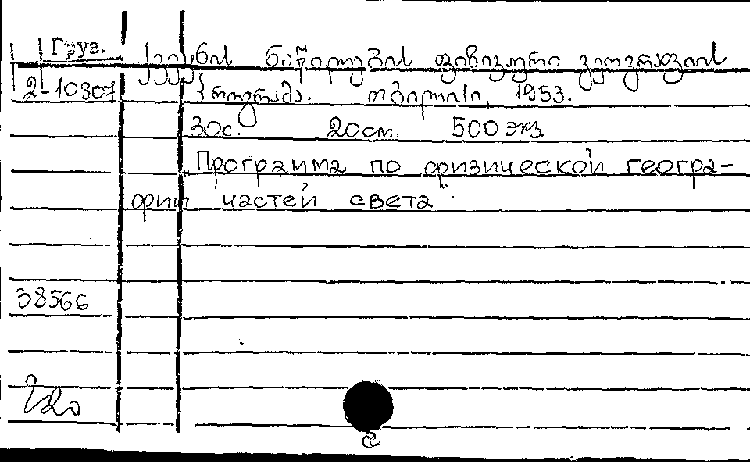 Груз.
ქვეყნის ნაწილების ფიზიკური გეოგრაფიის
2-10307 პროგრამა. თბილისი, 1953.
30с. 20см. 500 экз
Программа по физической геогра-
фии частей света
38566